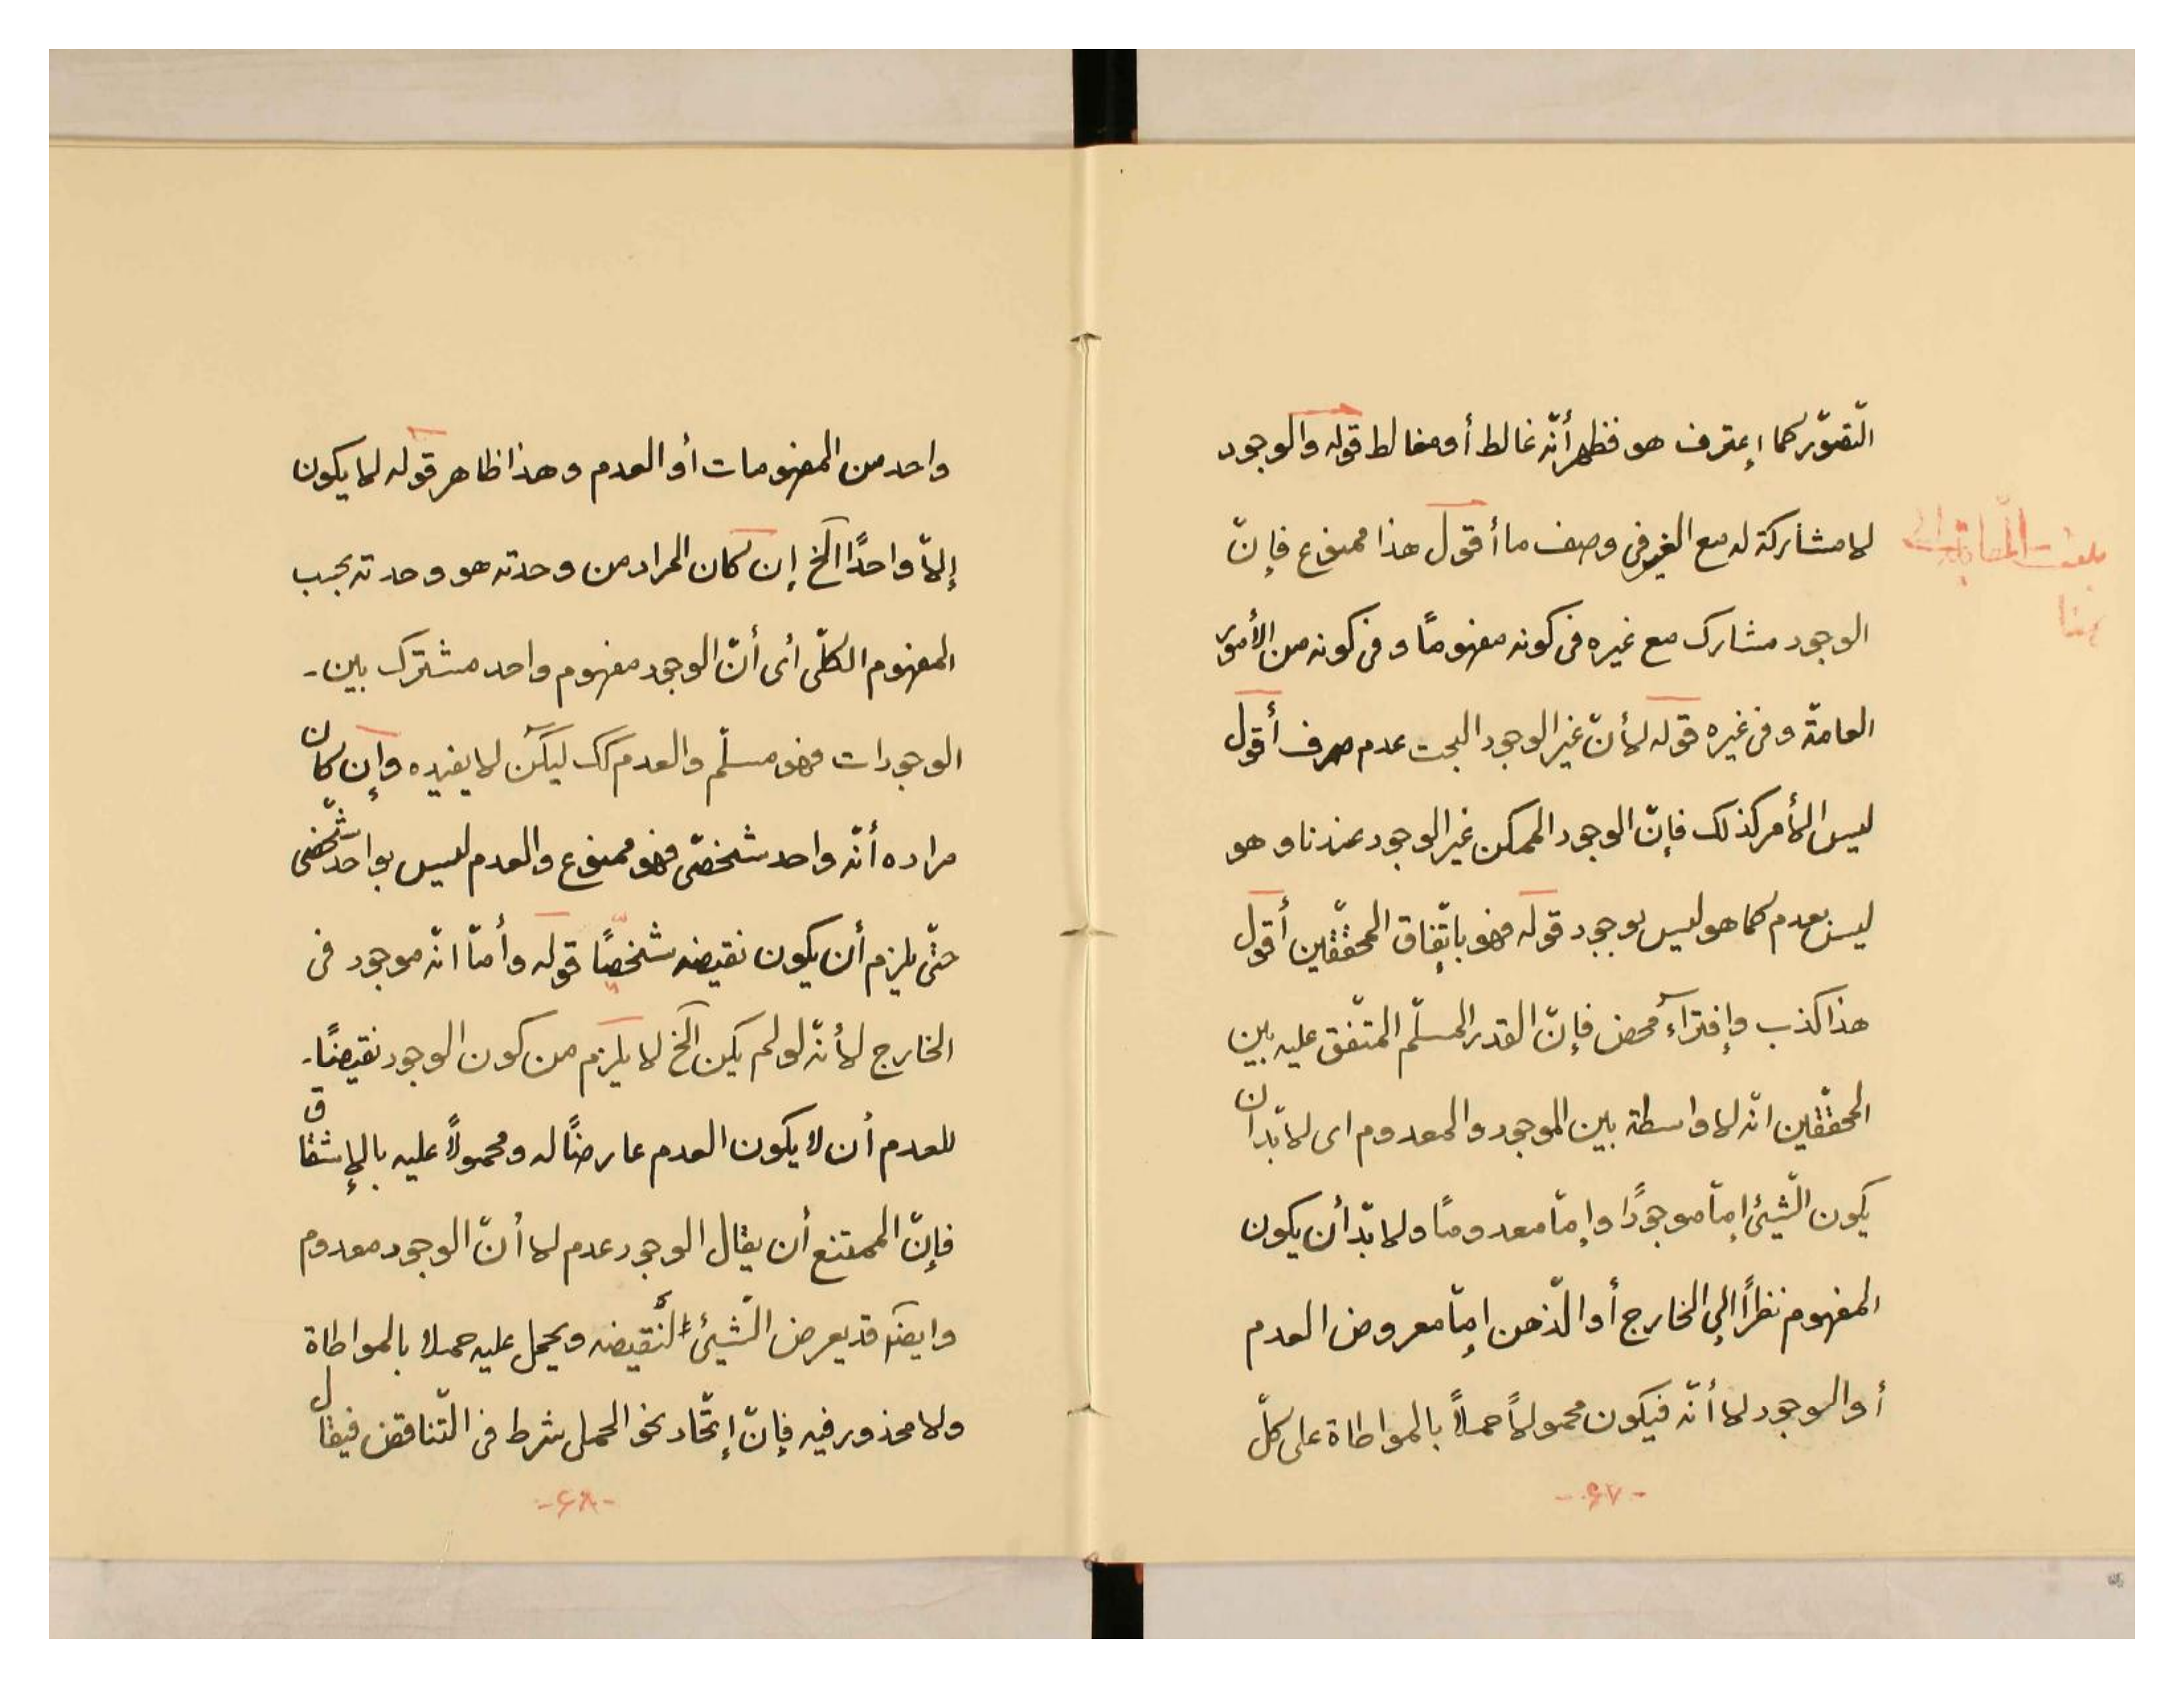 التّصوّر كما إعترف هو فظهر أنّه غالط أو مغالط قوله والوجود
لا مشاركة له مع الغير في وصف ما أقول هذا ممنوع فإنّ
الوجود مشارك مع غيره فى كونه مفهومًا و فى كونه من الأمور
العامّة و فى غيره قوله لأنّ غير الوجود البحت عدم صرف أقول
ليس الأمر كذلك فإنّ الوجود الممكن غير الوجود عندنا و هو
ليس بعدم كما هو ليس بوجود قوله فهو باتّفاق المحقّقين أقول
هذا كذب وإفتراء محض فإنّ القدر المسلّم المتّفق عليه بين
المحقّقين انّه لا واسطة بين الموجود والمعدوم اى لا بدّ ان
يكون الشّيئ إمّا موجودًا وإمّا معدومًا ولا بدّ أن يكون
المفهوم نظرًا إلى الخارج أو الذّهن إمّا معروض العدم
أو الوجود لا أنّه فيكون محمولاً حملاً بالمواطاة على كلّ
-۶۷-
بلغت المقابلة إلى
هنا
واحد من المفهومات أو العدم و هذا ظاهر قوله لا يكون
إلاّ واحدًا الخ إن كان المراد من وحدته هو وحدته بحسب
المفهوم الكلّى أى أنّ الوجود مفهوم واحد مشترك بين-
الوجودات فهو مسلّم والعدم كك ليكن لا يفيده وإن كان
مراده أنّه واحد شخصّى فهو ممنوع والعدم ليس بواحد شخّصى
حتّى يلزم أن يكون نقيضه شخصيًّا قوله وأمّا انّه موجود فى
الخارج لأنّه لو لم يكن الخ لا يلزم من كون الوجود نقيضًا-
للعدم أن لا يكون العدم عارضًا له ومحمولاً عليه بالإشتقاق
فإنّ الممتنع أن يقال الوجود عدم لا أنّ الوجود معدوم
وايضًا قد يعرض الشّيئ لنقيضه ويحمل عليه حملا بالمواطاة
ولا محذور فيه فإنّ إتّحاد نحو الحمل شرط فى التّناقض فيقال
-۶۸-